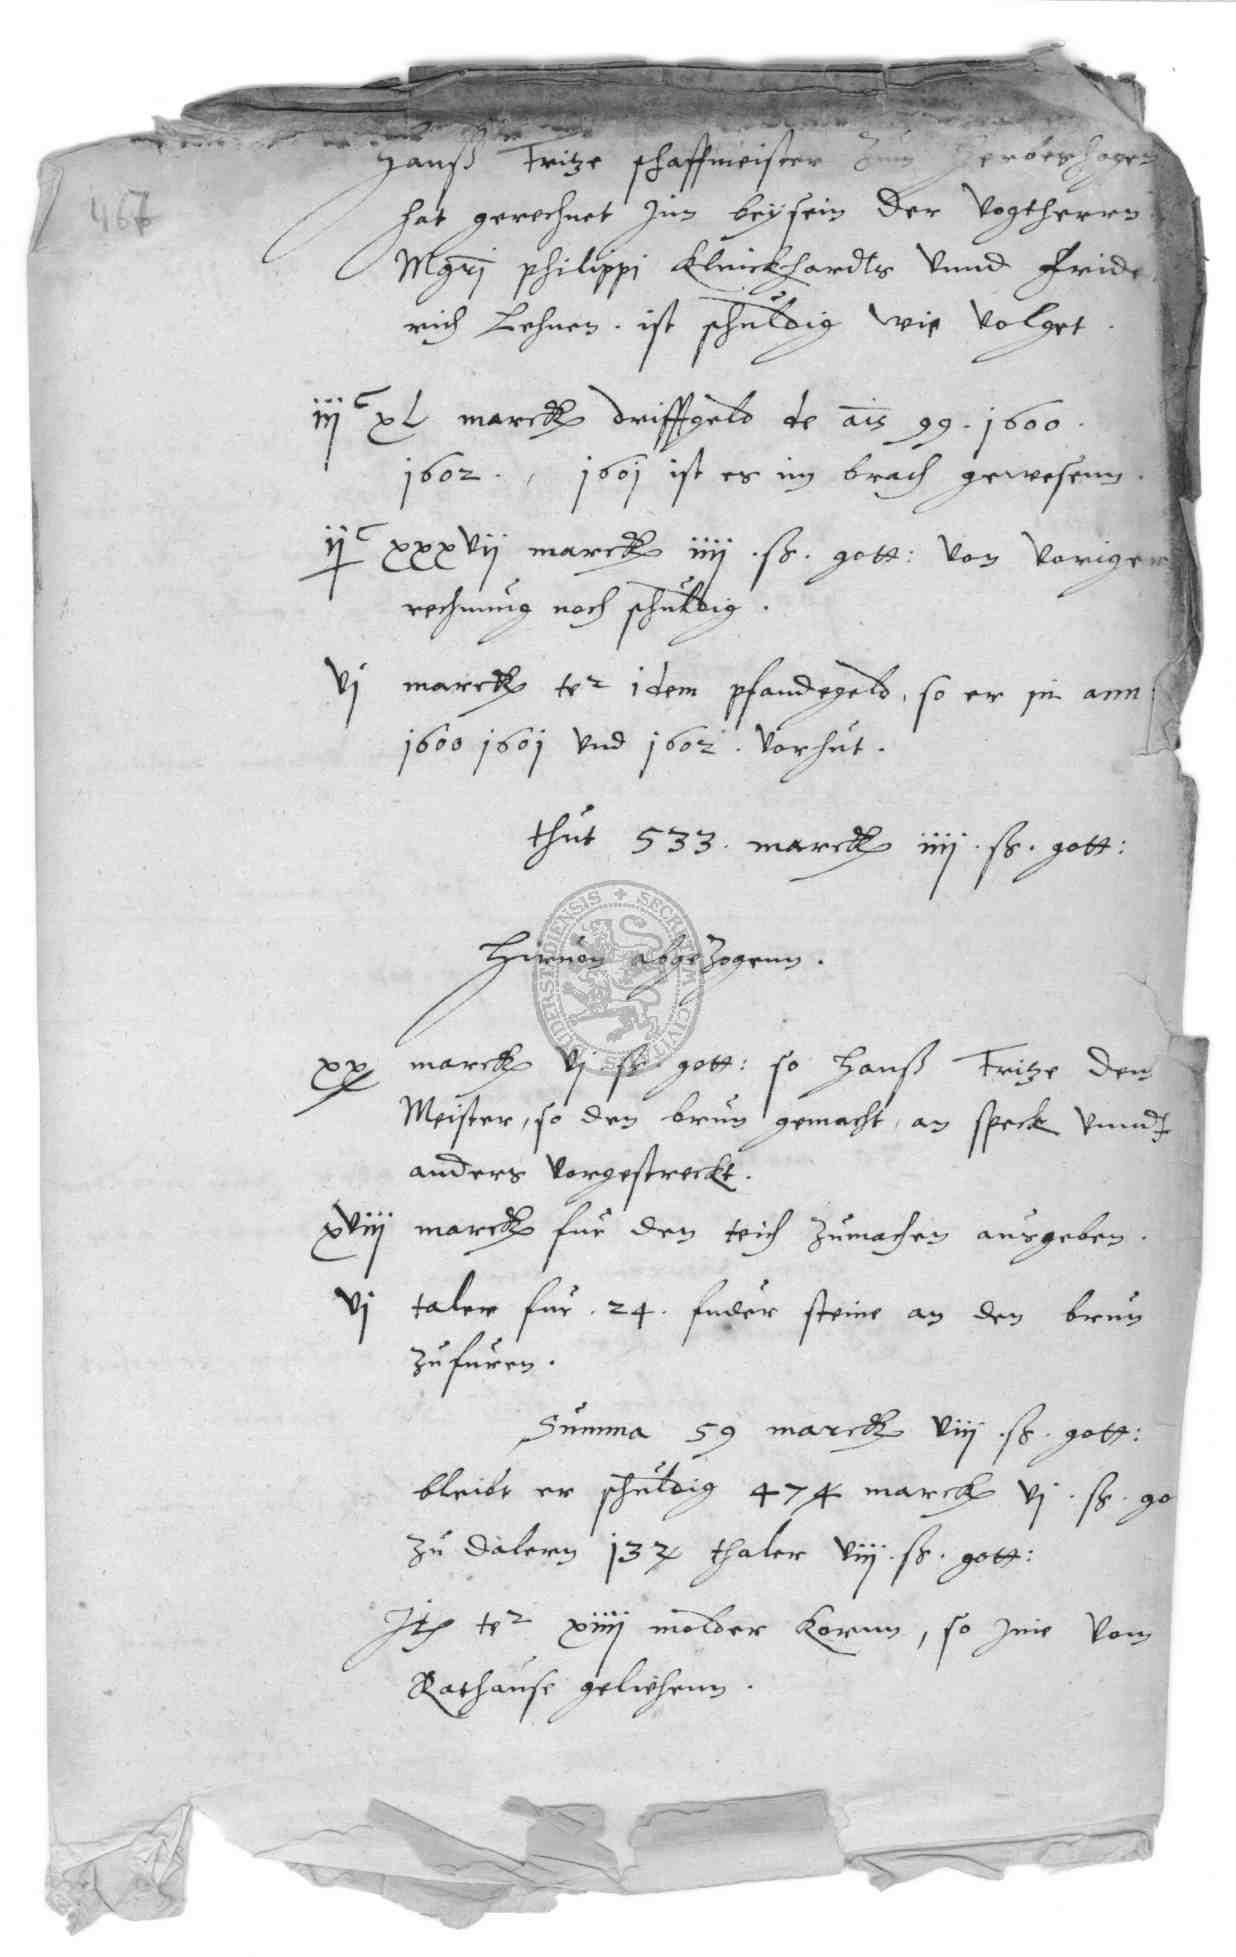 467
Hanß Fritze schaffmeister Zum Herbershagen
hat gerechnet Jnn beysein der Vogtherrn
Mgri philippi Kluickhardts Vnnd Fride
rich Lehnen . ist schuldig wie Volget .
iij C xL marck drifftgeld de ais 99 . 1600 .
1602 . , 1601 ist es im brach gewesenn .
ij C xxxvij marck iiij . ß . gott : von voriger
rechnung noch schuldig .
vj marck te2 idem pfandegeld , so er in ann
1600 1601 vnd 1602 . Vorhut .
thut 533 . marck iiij . ß . gott :
Hiruon abgezogenn .
SECRETUM CIVITATIS DUDERSTADIENSIS
xx marck vj . ß . gott : so Hanß Fritze den
Meister , so den brun gemacht , an speck vnnd
anders vorgestreckt .
xviij marck fur den teich zumachen ausgeben .
vj taler fur . 24 . fuder steine an den brun
zufuren .
Summa 59 marck viij . ß . gott :
bleibt er schuldig 474 marck vj . ß . go
zu dalern 137 thaler viij . ß . gott :
Jt te2 xiiij molder Kornn , so Jme vom
Rathause geliehenn .